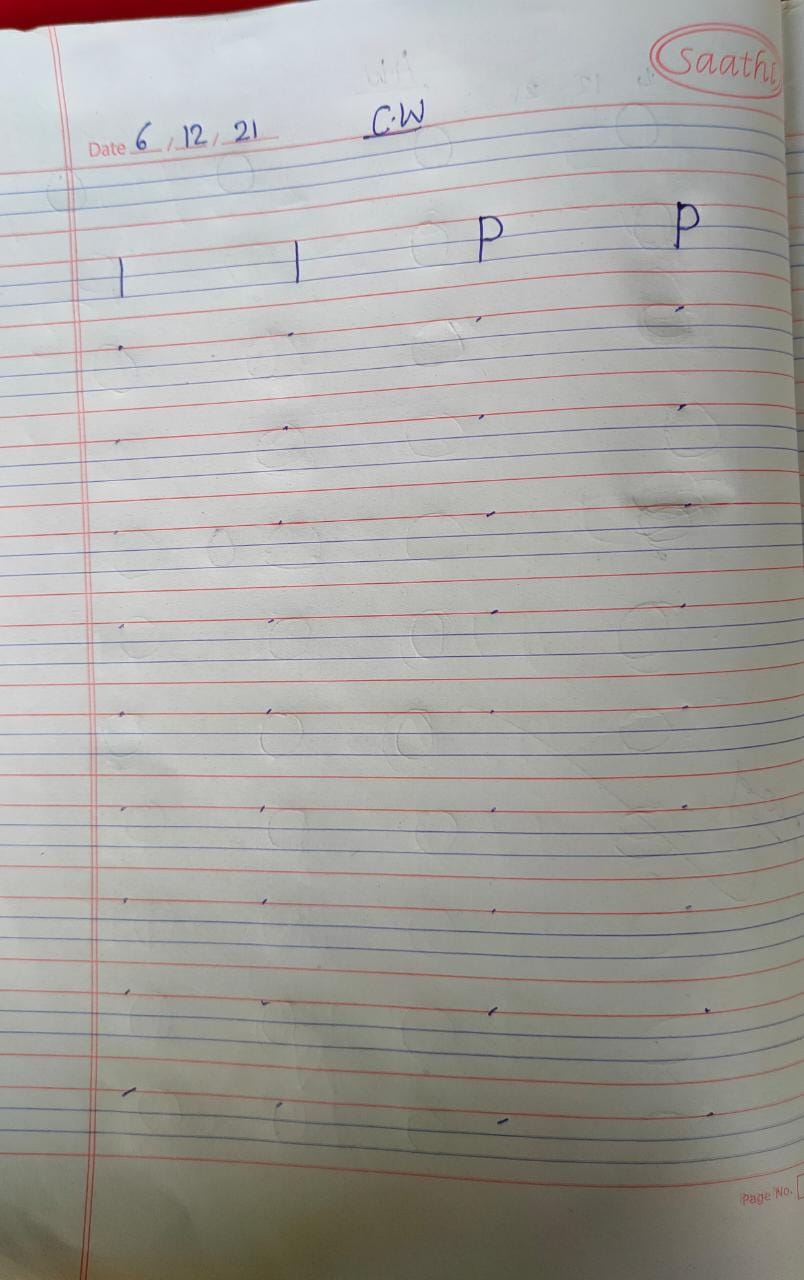 saathi
Date 6 / 12 / 21 C.W
| | P P
Page No.